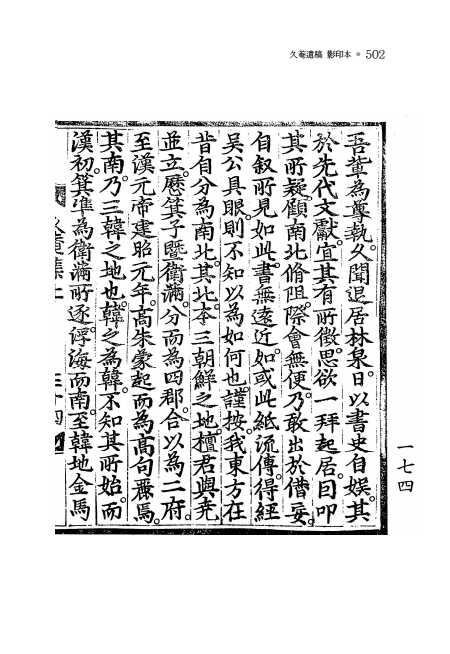 久菴遺稿 影印本 ● 502
吾輩為尊執。久聞退居林泉。日以書史自娛。其
於先代文獻。宜其有所徵。思欲一拜起居。因叩
其所疑。顧南北脩阻。際會無便。乃敢出於僭妄。
自叙所見如此。書無遠近。如或此紙流傳。得經
吳公具眼。則不知以為如何也。謹按。我東方在
昔自分為南北。其北。本三朝鮮之地。檀君與堯
並立。歷箕子曁衛滿。分而為四郡。合以為二府。
至漢元帝建昭元年。高朱蒙起而為高句麗焉。
其南。乃三韓之地也。韓之為韓。不知其所始。而
漢初。箕準為衛滿所逐。浮海而南。至韓地金馬
久菴集上 三十四
一七四